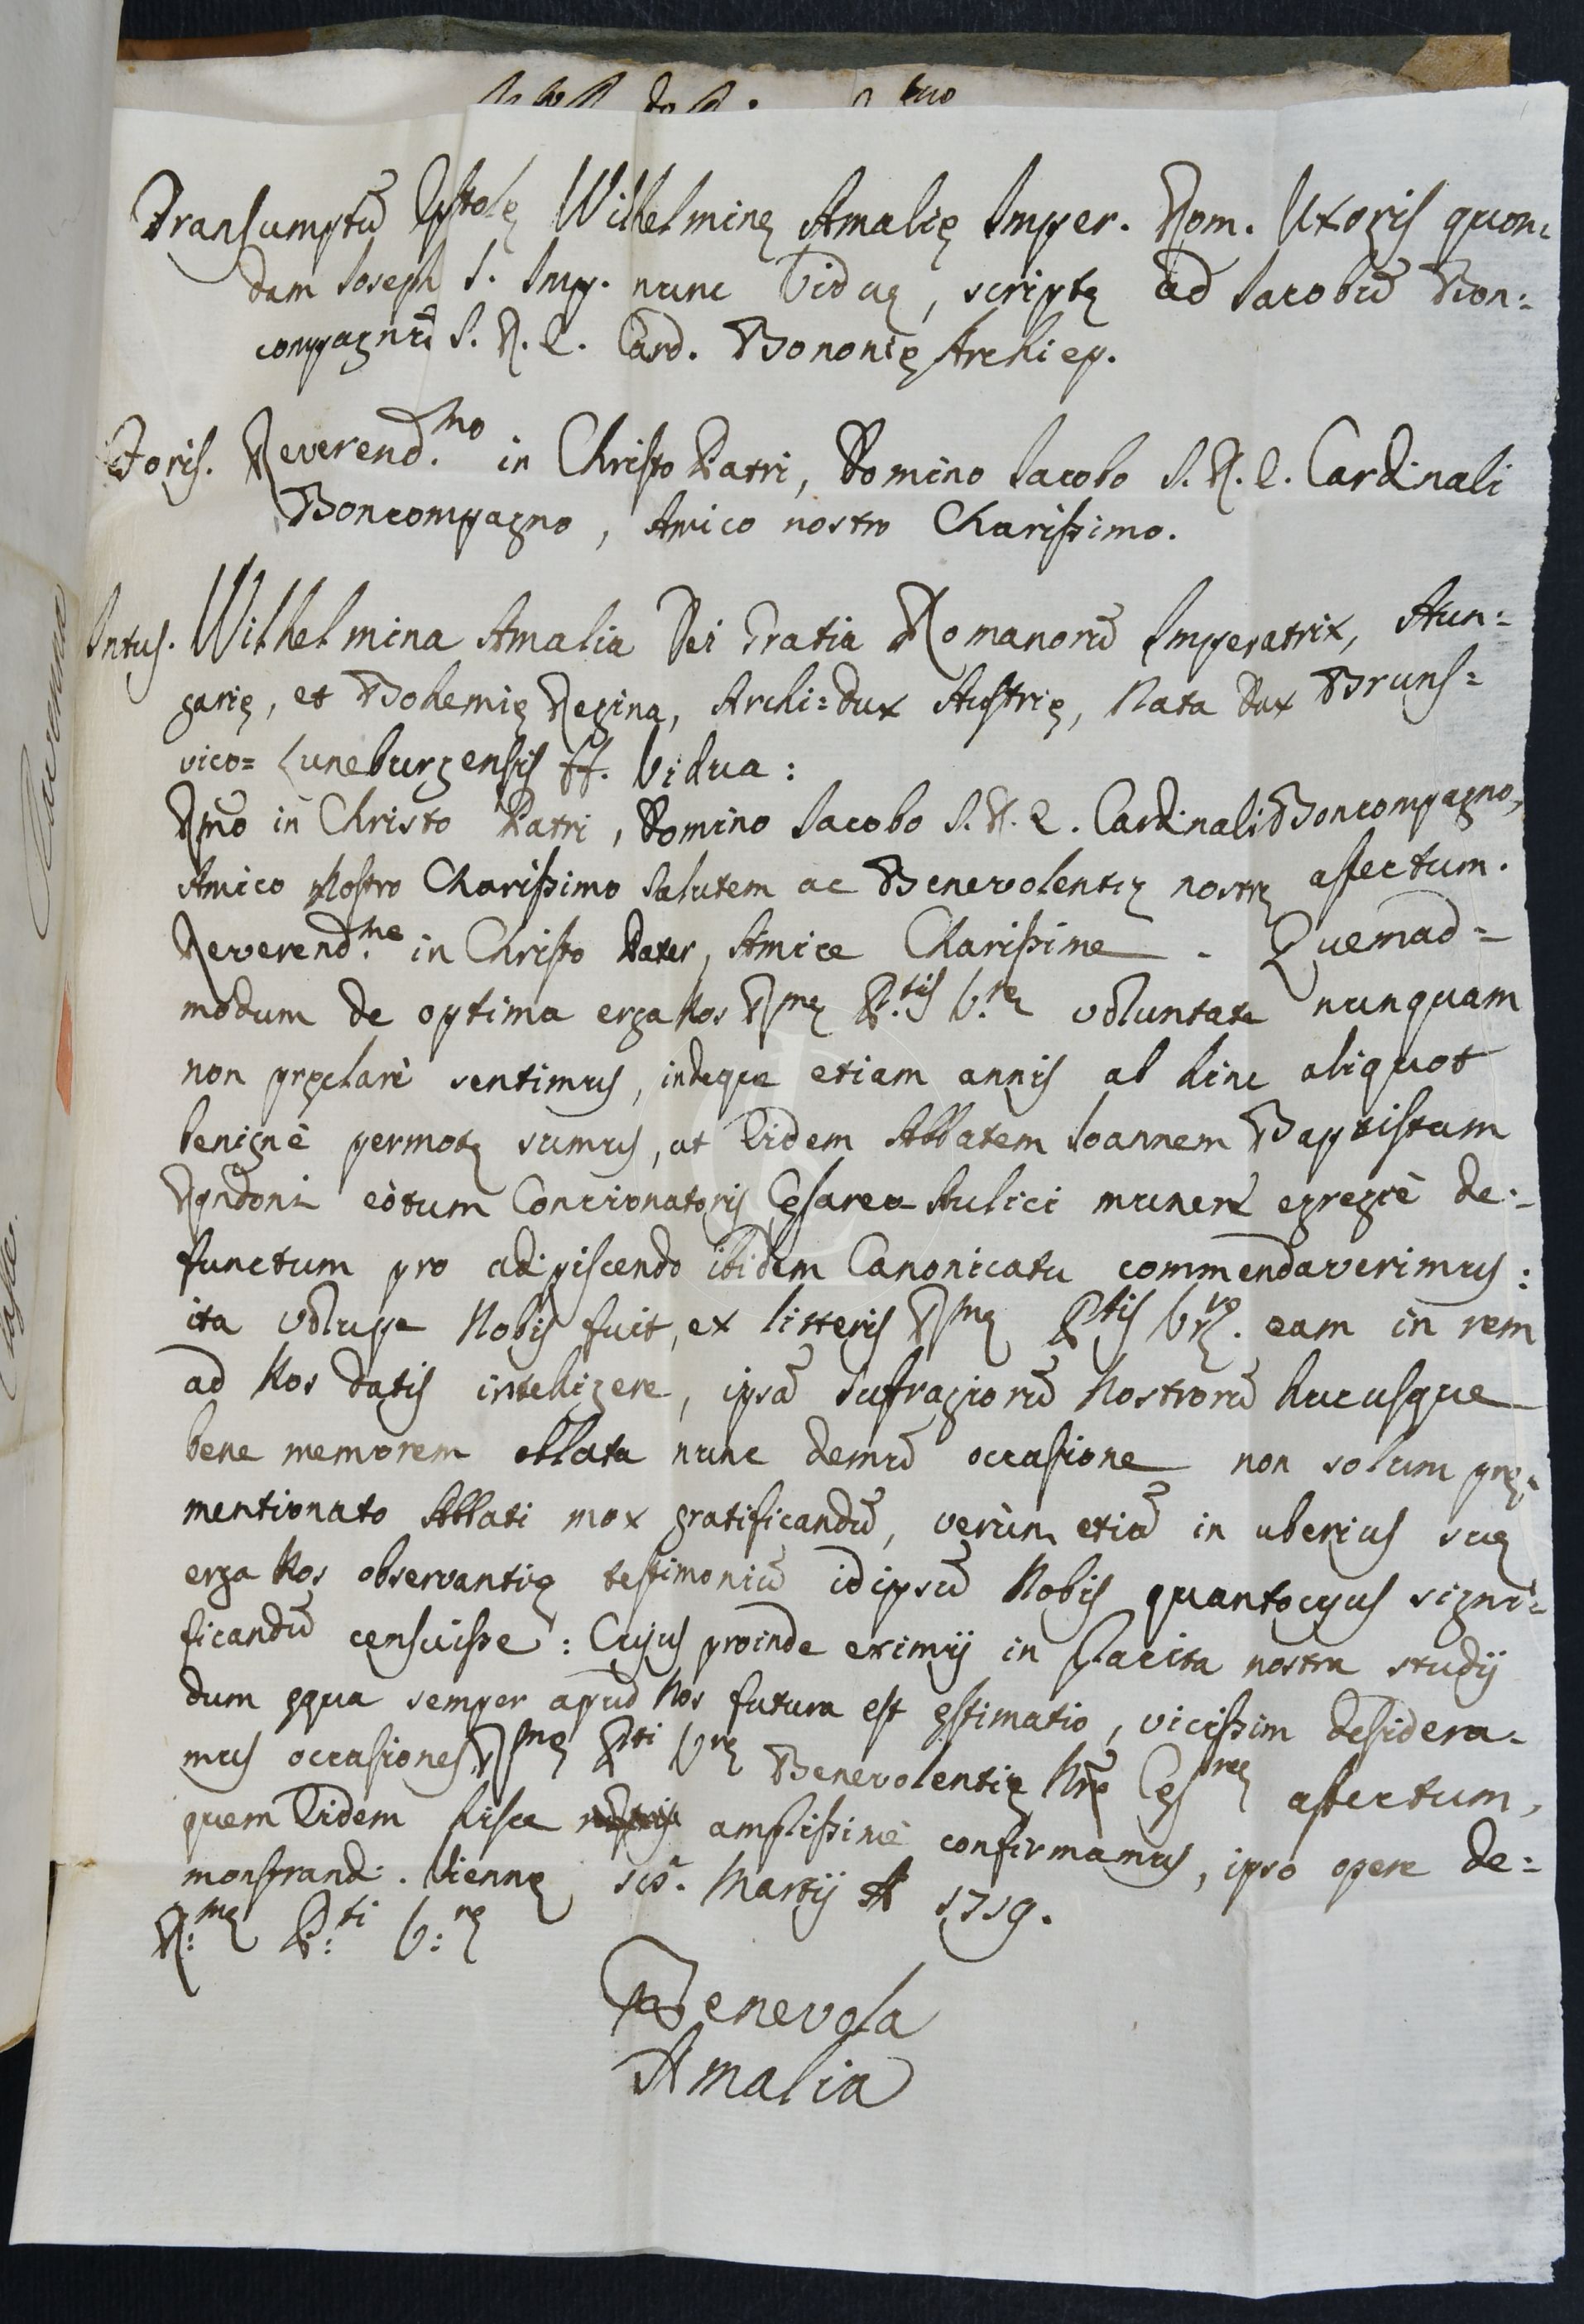 Transumptũ Epstolę Wilhelminę Amalię Imper. Rom. Uxoris quon=
dam Joseph I. Imp. nunc Viduę, scriptę ad Jacobũ Bon=
compagnũ S. R. E. Card. Bononię Archiep.
Foris. Reverend.mo in Christo Patri, Domino Jacobo S. R. E. Cardinali
Boncompagno, Amico nostro Charissimo.
Intus. Wilhelmina Amalia Dei Gratia Romanorũ Imperatrix, Hun=
garię, et Bohemię Regina, Archi=dux Austrię, Nata Dux Bruns=
vico=Luneburgensis ff. Vidua:
Rmõ in Christo Patri, Domino Jacobo S. R. E. Cardinali Boncompagno,
Amico Nostro Charissimo Salutem ac Benevolentię nostrę affectum.
Reverend.me in Christo Pater, Amice Charissime. Quemad=
modum de optima erga Nos Rmę P.tis V.rę voluntate nunquam
non pręclarè sentimus, indeque etiam annis ab hinc aliquot
benignè permotę sumus, ut Eidem Abbatem Joannem Baptistam
Rondoni eòtum Concionatoris Cęsareo Aulici munere egregiè de=
functum pro adipiscendo ibidem Canonicatu commendaverimus:
ita volupe Nobis fuit, ex litteris Rmę Ptis Vrę. eam in rem
ad Nos datis intelligere, ipsã Suffragiorũ Nostrorũ hucusque
bene memorem oblata nunc demũ occasione non solum prę=
mentionato Abbati mox gratificandũ, verùm etiã in uberius suę
erga Nos observantię testimoniũ idipsũ Nobis quantocyus signi=
ficandũ censuisse: Cujus proinde eximij in Placita nostra studij
dum ęqua semper apud Nos futura est ęstimatio, vicissim desidera=
mus occasiones Rmę Pti Vrę Benevolentię Nrę Cęsreę affectum,
quem Eidem hisce amplissimè confirmamus, ipso opere de=
monstrand: Viennę Martij A 1719.
R:mę P:ti V:rę
Benevola
Amalia